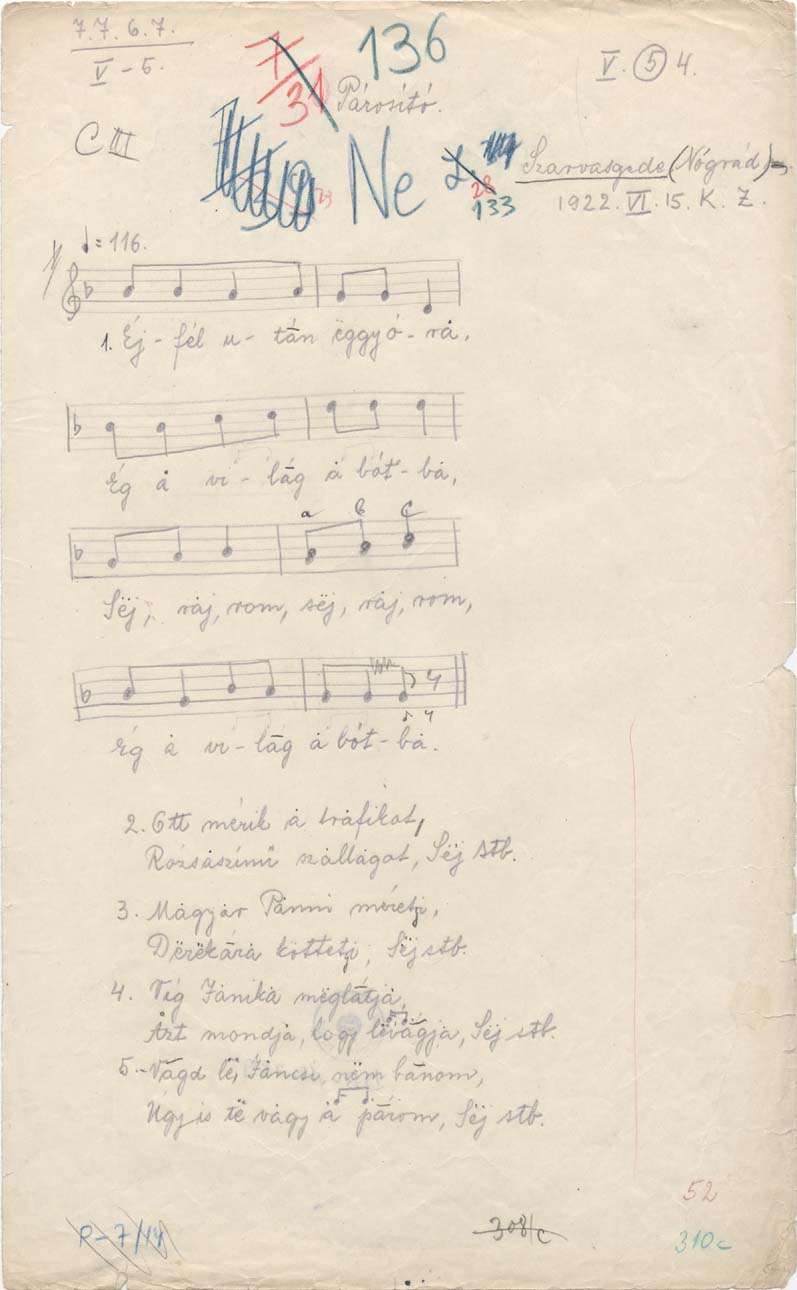 7. 7. 6. 7.
V - 5.
7/31
136
V. 5 4.
Párosító.
C III
Ne
28
133
Szarvasgede (Nógrád)
1922. VI. 15. K. Z.
♩= 116.
1. Éj - fél u - tān ëggyó - rȧ,
Ég ȧ vi - lág ȧ bót - bȧ,
a b c
Sëj, rȧj, rom, sëj, rȧj, rom,
Ég ȧ vi - lāg ȧ bót - bȧ.
2. Ott mérik ȧ trȧfikot,
Rozsaszínű szȧllagot, Sëj stb.
3. Mȧgyȧr Pȧnni méretji,
Dërëkārȧ köttetji, Sëj stb.
4. Víg Jȧnikȧ mëglātjȧ,
Azt mondjȧ, hogy lëvāgjȧ, Sëj stb.
5. Vāgd lë, Jȧncsi, nëm bānom,
Úgyis të vȧgy ȧ pārom, Sëj stb.
52
R-7/14
308/c
310c